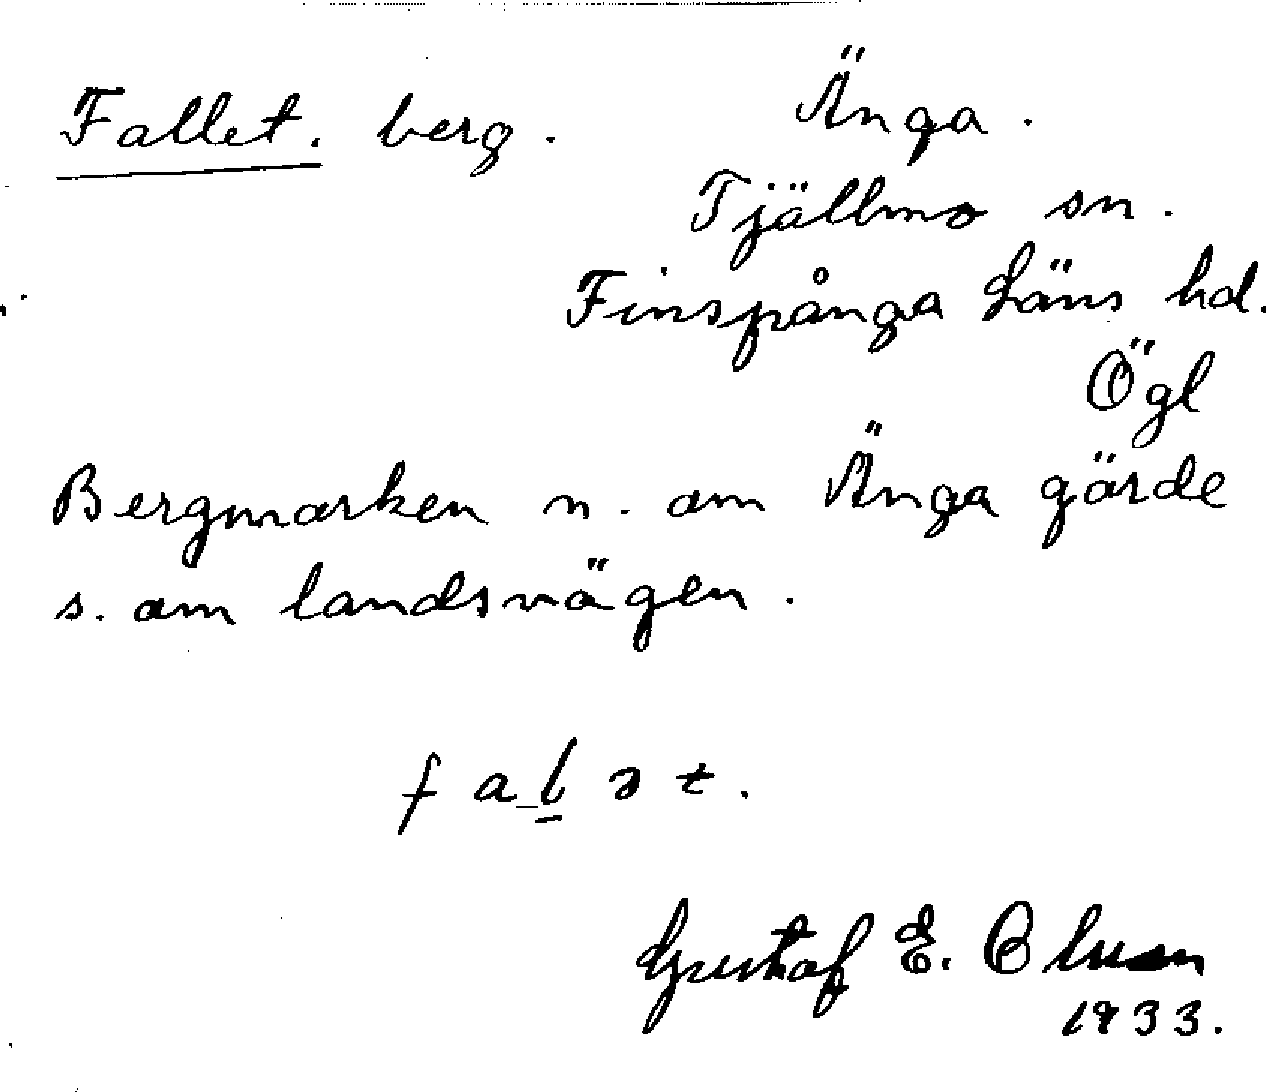 Fallet. berg. Änga.
Tjällmo sn.
Finspånga Läns hd.
Ögl
Bergmarken n. om Änga gärde
s. om landsvägen.
f a l ə t.
Gustaf E. Blum
1933.